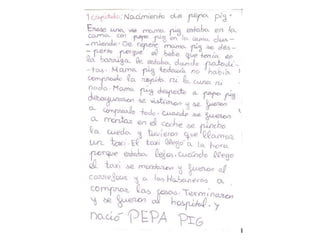 1 capitulo: Nacimiento de pepa pig.
Erase una vez mama pig estaba en la
cama con pepa pig en la cuna dur-
miendo. De repente mama pig se des-
perto porque el bebe que tenia en
la barriga le estaba dando patadi-
tas. Mama pig todavia no habia
comprado la ropita ni la cuna ni
nada. Mama pig desperto a papa pig
desayunaron se vistieron y se fueron
a comprarlo todo. Cuando se fueron
a montar en el coche se pincho
la rueda y tuvieron que llamar
un taxi. El taxi llego a la hora
porque estaba lejos. Cuando llego
el taxi se montaron y fueron al
carrefour y a las Habaneras a
comprar las cosas. Terminaron
y se fueron al hospital y
nació PEPA PIG